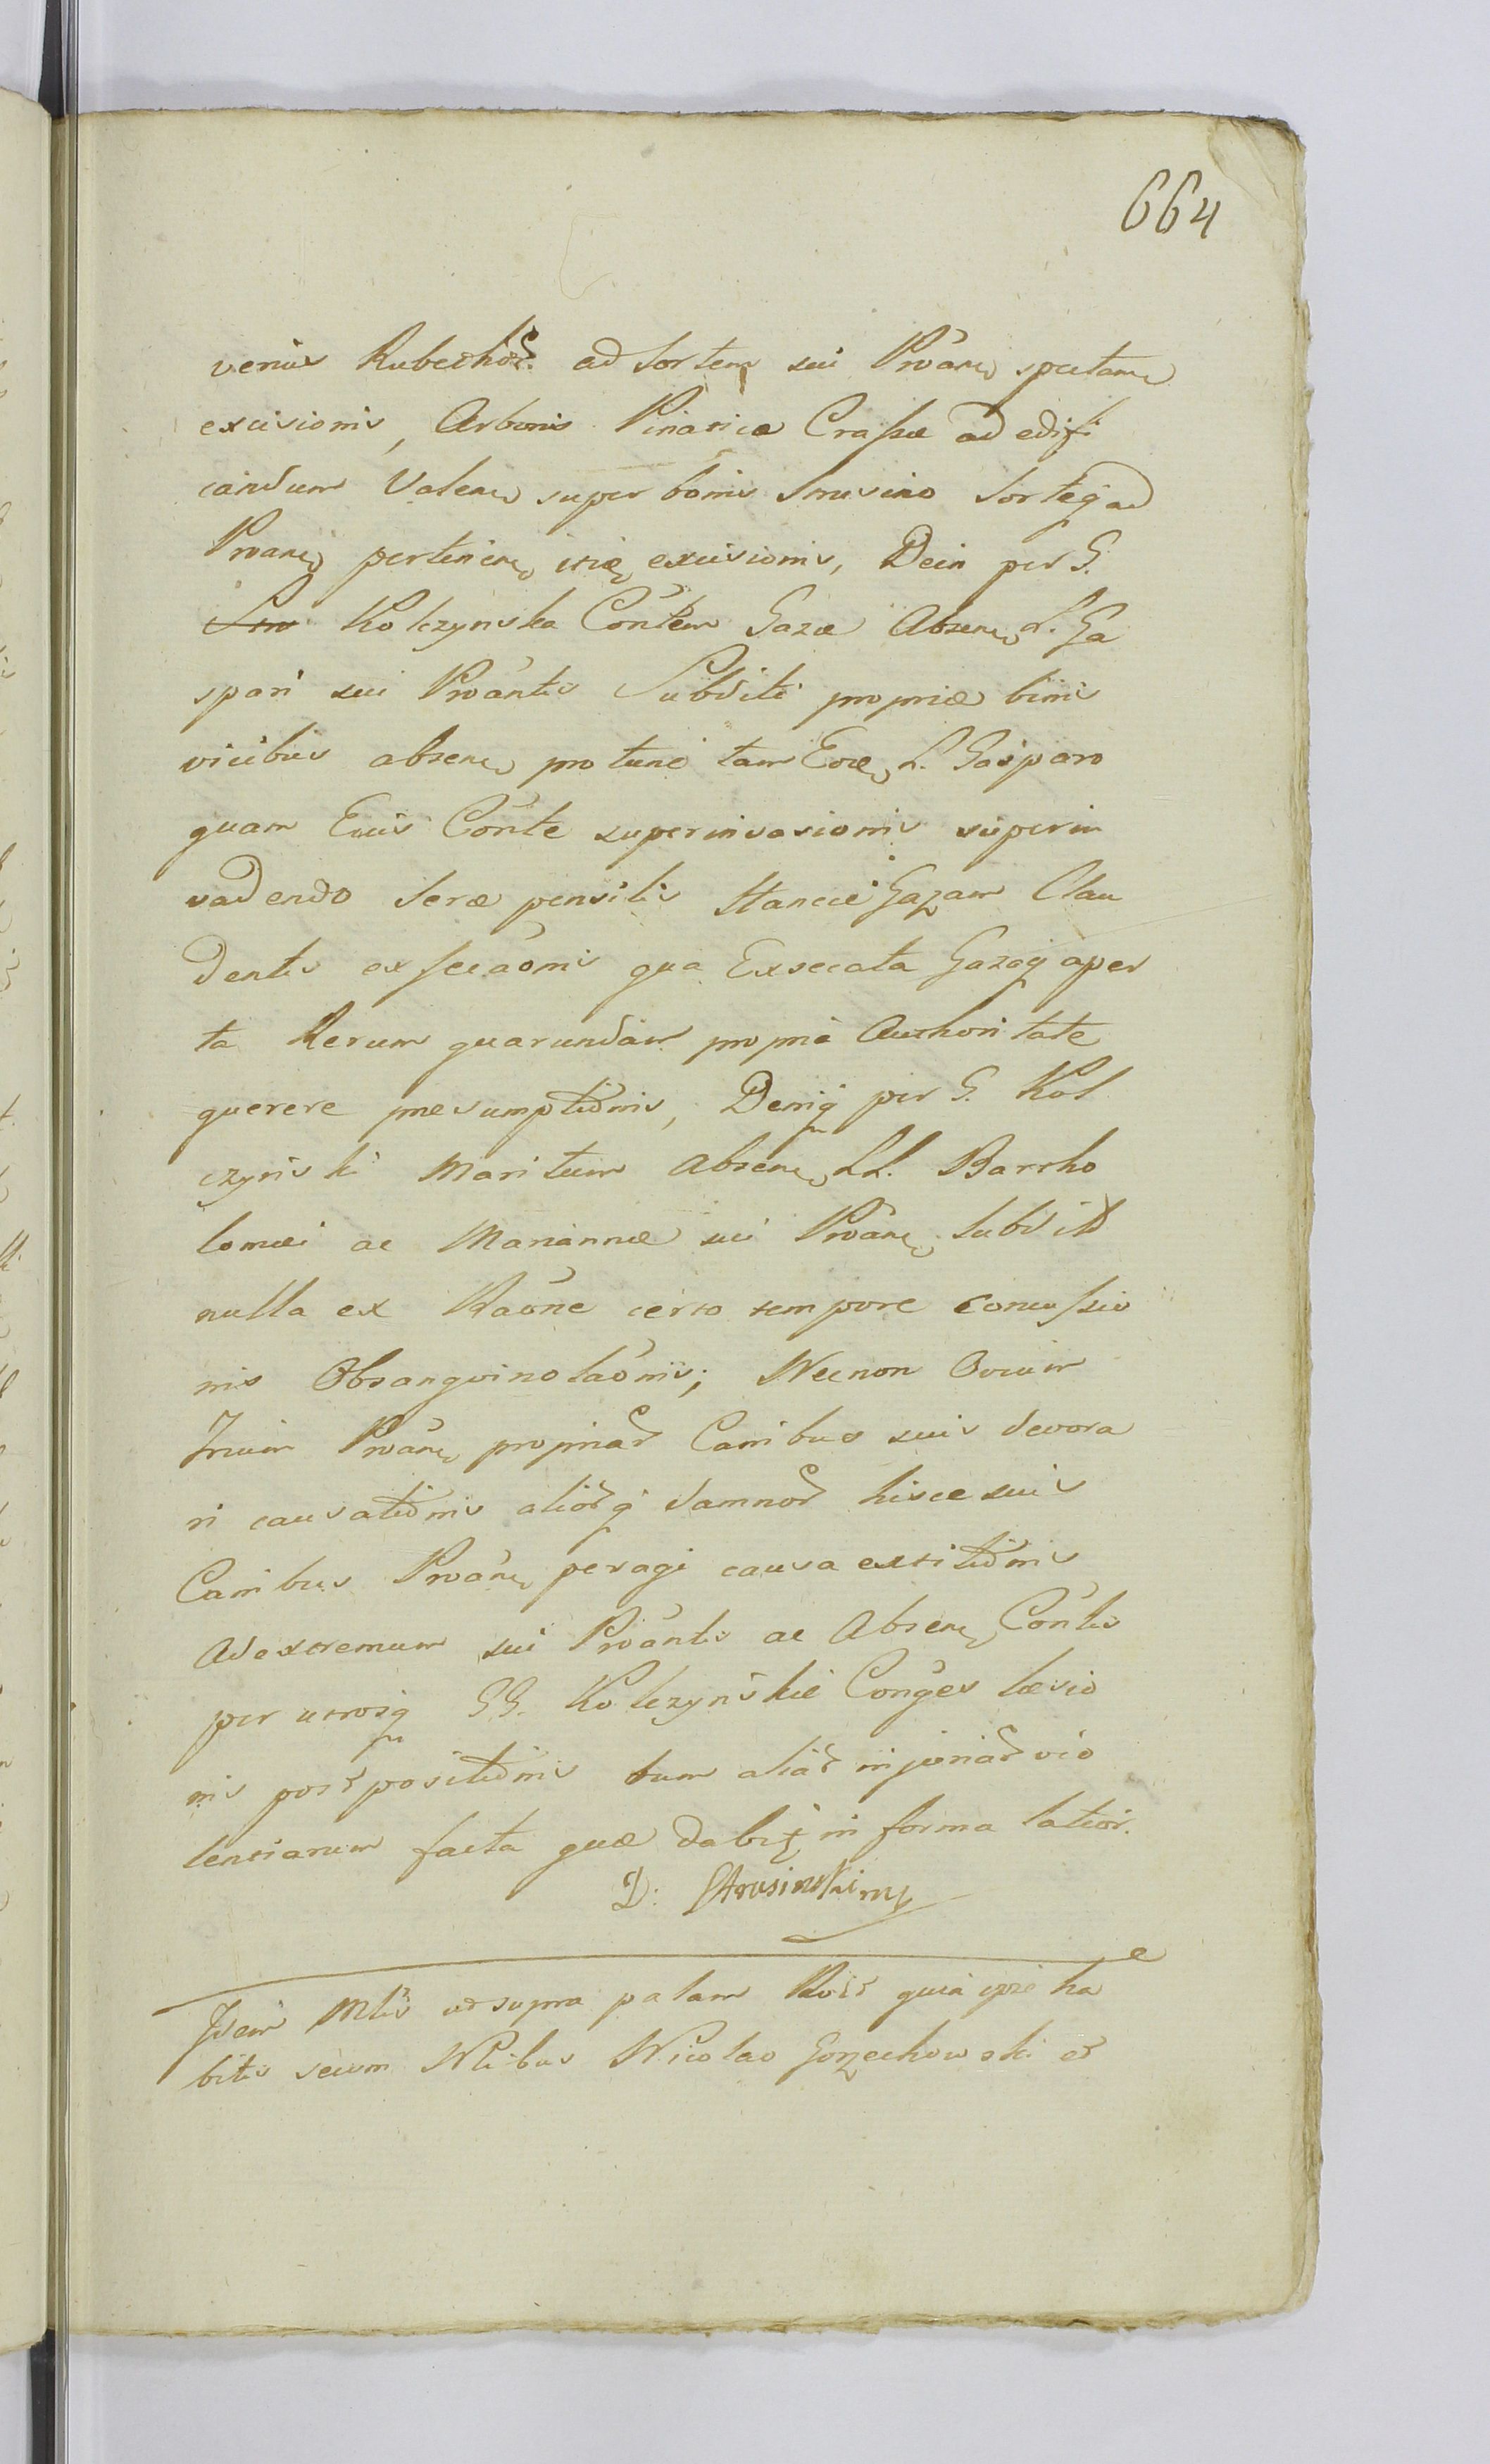 664
venius ad sortem sui Proãne spectane
excisionis, Arboris Pinaticæ Crassæ ad edifi
candum Valene super bonis Smusino Sorteq ad
Proane pertinene excisionis, Dein per G.
Kolczynska Cõntem Gazæ Absene L. Ga
spari sui Proãntis Subditi propriæ binis
vicibus absene pro tunc tam L. Gasparo
quam Eius Cõnte superinvasionis superin
vadendo Seræ pensilis Stancie Gazam Clau
dentis exsecaõnis qua Exsecata Gazaq aper
ta Rerum quarundam propriâ Authoritate
querere præsumptionis, Deniq per G. Kol
czynski Maritum Absene LL. Bartho
lomæi ac Mariannæ sui Proãne Subdit
nulla ex Raõne certo tempore concussio
nis Obsangvinolaõnis; Necnon Ovium
Proãne propriar Canibus suis devora
ri causationis alior q damnor hisce suis
Canibus Proãne peragi causa extitionis
Ad extremum sui Proãntis ac Absene Cõntis
per utrosq GG. Kolczynskie Conges læsio
nis postpositionis tum aliar injuriar vio
lentiarum facta quæ dabit in forma latior.
D: Strusinski mp
Idem Mtis ut supra palam quia ha
bitis secum Nlibus Nicolao Gorzechowski et